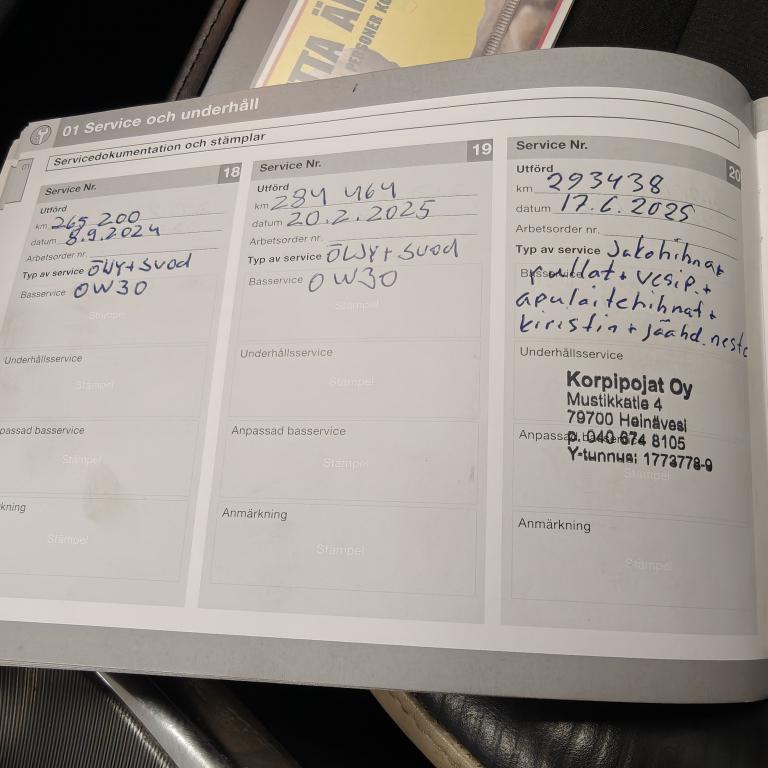 TTA Ä
PERSONER KO
01 Service och underhåll
01
Servicedokumentation och stämplar
18
Service Nr.
Utförd
km 265 200
datum 8.9.2024
Arbetsorder nr.
Typ av service ÖLJY + SUOD
Basservice 0W30
Stämpel
Underhållsservice
Stämpel
passad basservice
Stämpel
kning
Stämpel
19
Service Nr.
Utförd
km 284 464
datum 20.2.2025
Arbetsorder nr.
Typ av service ÖLJY + SUOD
Basservice 0W30
Stämpel
Underhållsservice
Stämpel
Anpassad basservice
Stämpel
Anmärkning
Stämpel
20
Service Nr.
Utförd
km 293438
datum 17.6.2025
Arbetsorder nr.
Typ av service Jakohihnat
Basservice rullat + vesip. +
apulaitehihnat +
kiristin + jäähd.neste
Underhållsservice
Korpipojat Oy
Mustikkatie 4
79700 Heinävesi
Anpassad basservice
p. 040 674 8105
Y-tunnus: 1773778-9
Stämpel
Anmärkning
Stämpel